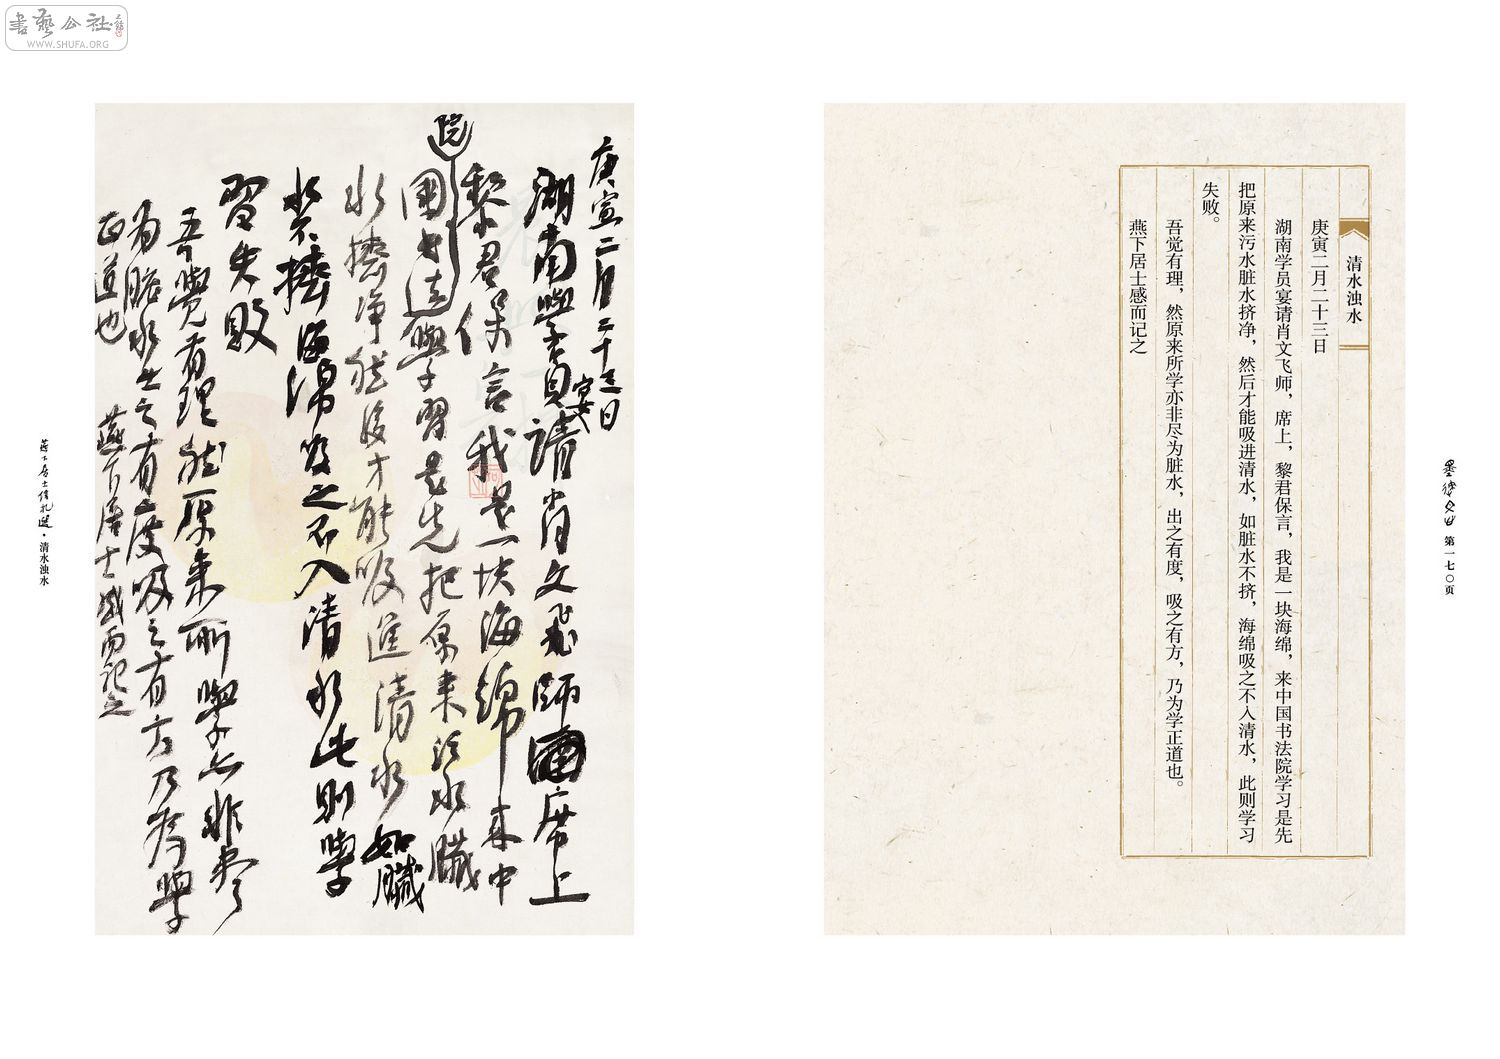 書藝公社
WWW.SHUFA.ORG
清水浊水
庚寅二月二十三日
湖南学员宴请肖文飞师，席上，黎君保言，我是一块海绵，来中国书法院学习是先
把原来污水脏水挤净，然后才能吸进清水，如脏水不挤，海绵吸之不入清水，此则学习
失败。
吾觉有理，然原来所学亦非尽为脏水，出之有度，吸之有方，乃为学正道也。
燕下居士感而记之
第一七〇页
庚寅二月二十三日
湖南學員宴請肖文飞師席上
黎君保言我是一块海綿来中
國书法院學習是先把原来污水臟
水擠净然後才能吸進清水如臟
水不擠海綿吸之不入清水此则學
習失敗
吾覺有理然原来所學亦非尽
为脏水出之有度吸之有方乃为學
正道也
燕下居士感而記之
燕下居士信札选·清水浊水